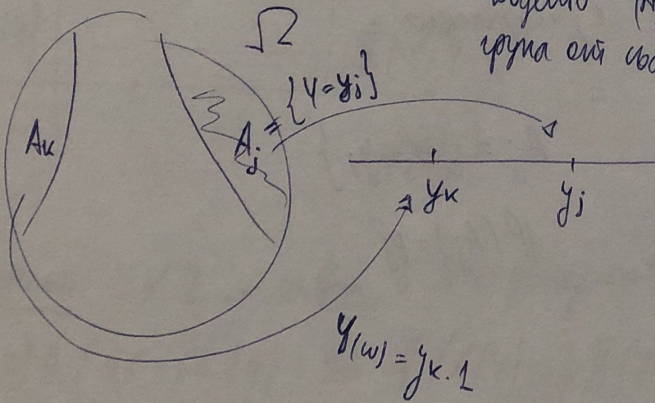 група от
Ω
A_j = {Y = y_j}
A_k
y_k y_j
Y(ω) = y_k . 1